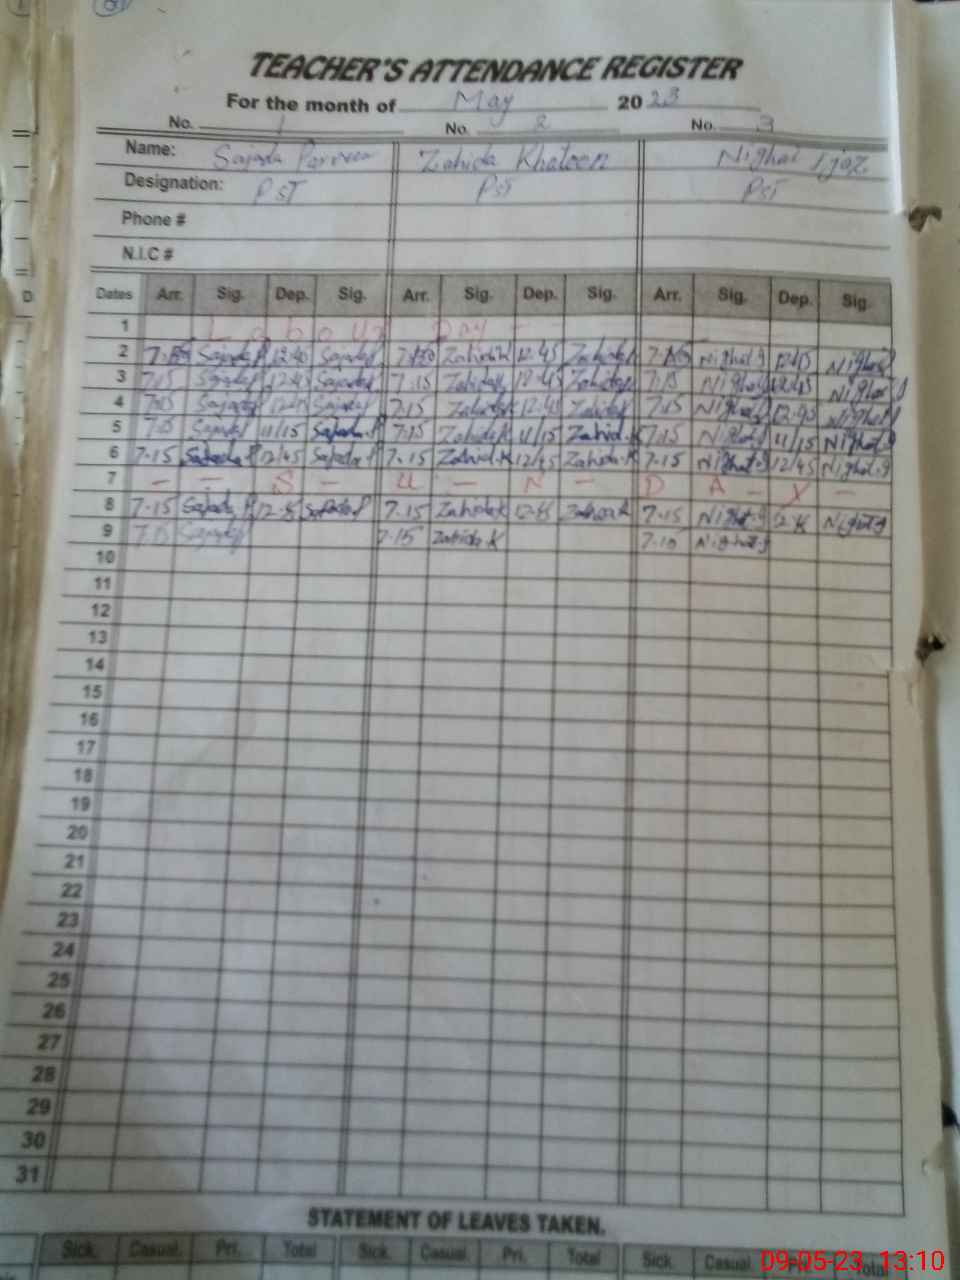 TEACHER'S ATTENDANCE REGISTER
For the month of May 2023
No. 1 No. 2 No. 3
Name: Sajada Parveen Zahida Khatoon Nighat Ijaz
Designation: PST PST PST
Phone #
N.I.C #
Dates Arr. Sig. Dep. Sig. Arr. Sig. Dep. Sig. Arr. Sig. Dep. Sig.
1 Labour Day
2 Sajada P 12:45 Sajada P Zahida K 12:45 Zahida K Nighat.I 12:45 Nighat I
3 7:15 Sajada P 12:45 Sajada P 7.15 Zahida K 12:45 Zahida K 7.15 Nighat I 12:45 Nighat I
4 7:15 Sajada P 12:45 Sajada P 7.15 Zahida K 12:45 Zahida K 7.15 Nighat I 12:45 Nighat I
5 7:15 Sajada P 11/15 Sajada.P 7.15 Zahida K 11/15 Zahid.K 7.15 Nighat I 11/15 Nighat.I
6 7-15 Sajada P 12/45 Sajada P 7.15 Zahid.K 12/45 Zahida.K 7-15 Nighat.I 12/45 Nighat.I
7 - - S - U - N - D A - Y -
8 7-15 Sajada P 12-45 Sajada P 7.15 Zahida K 12-45 Zahida K 7-15 Nighat.I Nighat I
9 7.15 Sajada P 7-15 Zahida K 7-15 Nighat-I
10
11
12
13
14
15
16
17
18
19
20
21
22
23
24
25
26
27
28
29
30
31
STATEMENT OF LEAVES TAKEN.
Sick. Casual. Pri. Total Sick. Casual. Pri. Total Sick. Casual. Total
09-05-23 13:10